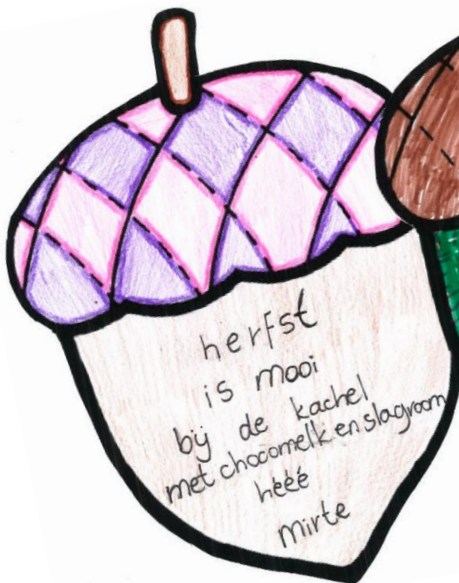 herfst
is mooi
bij de kachel
met chocomelk en slagroom
hééé
Mirte